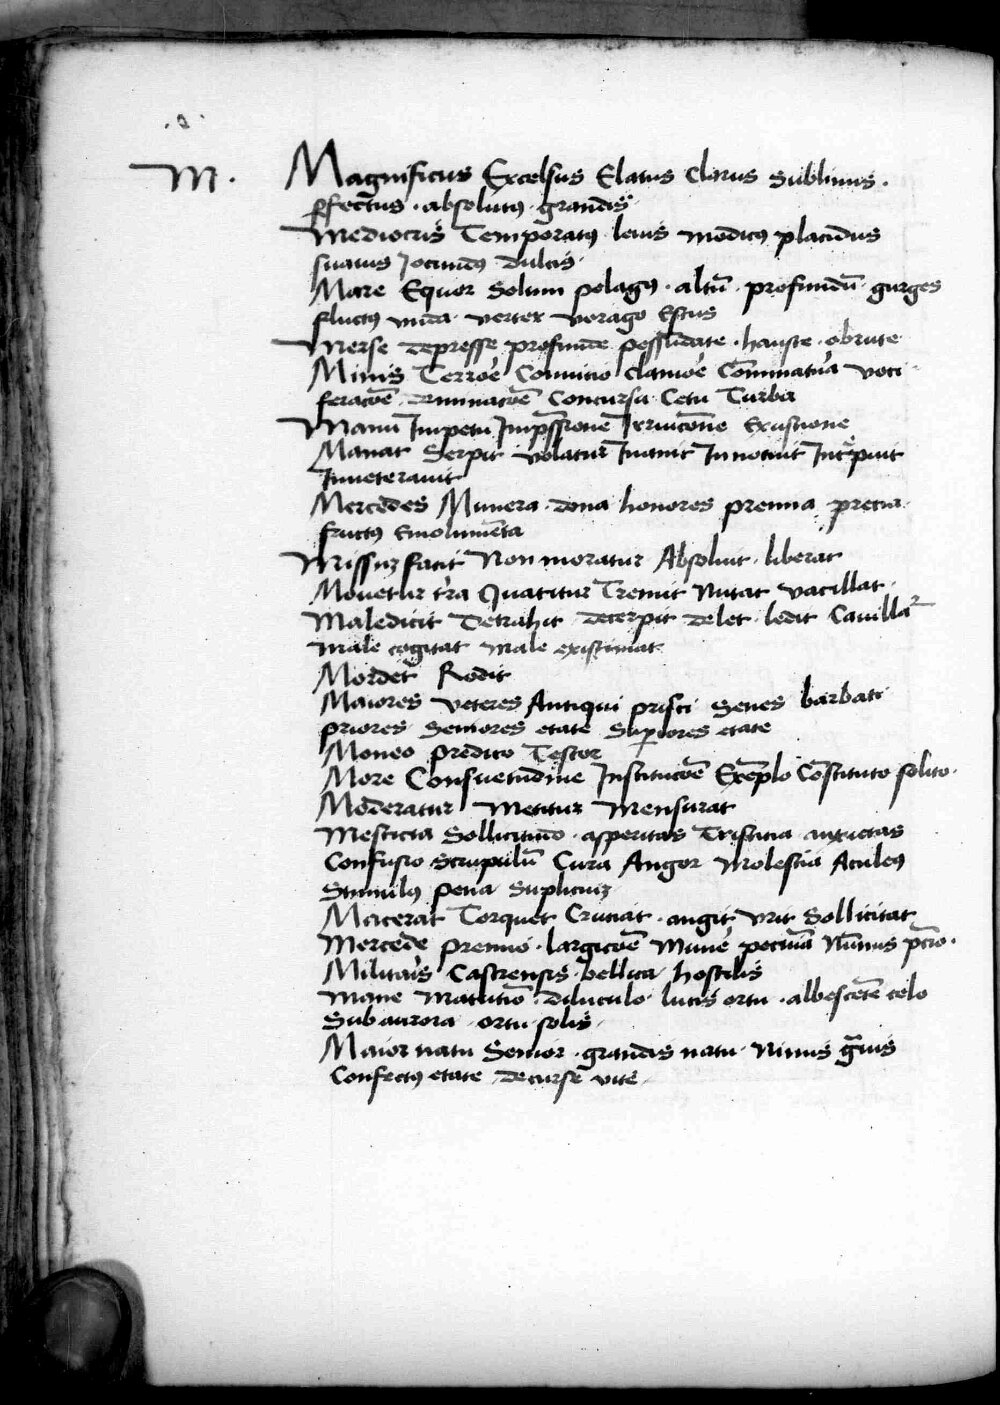 M. Magnificus Excelsus Elatus Clarus Sublimis.
ꝑfectus · absolutꝰ · grandis
Mediocris Temporatꝰ leuis modicꝰ placidus
suauis Jocundꝰ dulcis ·
Mare Equor Solum pelagꝰ · altū · profundū · gurges
fluctꝰ unda · vertex vorago Estus
Merse depresse profunde pessūdate · hauste · obrute
Minis Terrōe Conuitio clamōe Cōminatōa voci
feracōe Concursu Cetu Turba
Manu Impetu Impssione Exustione
Manat Serpit volatur Innotuit
Inueterauit
Mercedes Munera · dona honores premia precia ·
fructꝰ Emolumēta
Missuꝫ facit Non moratur Absoluit · liberat
Mouetur tr̄a Quatitur Tremit Nutat vacillat ·
Maledicit Detrahit decerpit delet · ledit Cauillat
male cogitat male existimat
Mordet Rodit
Maiores veteres Antiqui prisci Senes barbati
priores Seniores etate Suꝑiores etate
Moneo predico Testor
More Consuetudine Institucōe Exēplo Cōstituto solito ·
Moderatur Metitur Mensurat
Mesticia Sollicitudo · asperitas Tristicia anxietas
Confusio Scrupulū Cura Angor Molestia Aculeꝰ
Stimulꝰ pena Supliciuꝫ
Macerat Torquet Cruciat · angit vrit Sollicitat
Mercede premio · largicōe Munē pecunia Nūmis p̄cio ·
Militāis Castrensis · bellica hostilis
Mane Matutīo · diluculo · lucis ortu · albescēte celo
Sub aurora · ortu solis ·
Maior natu Senior · grandis natu · Nimis gͣuis
Confectꝰ etate decurse vite ·